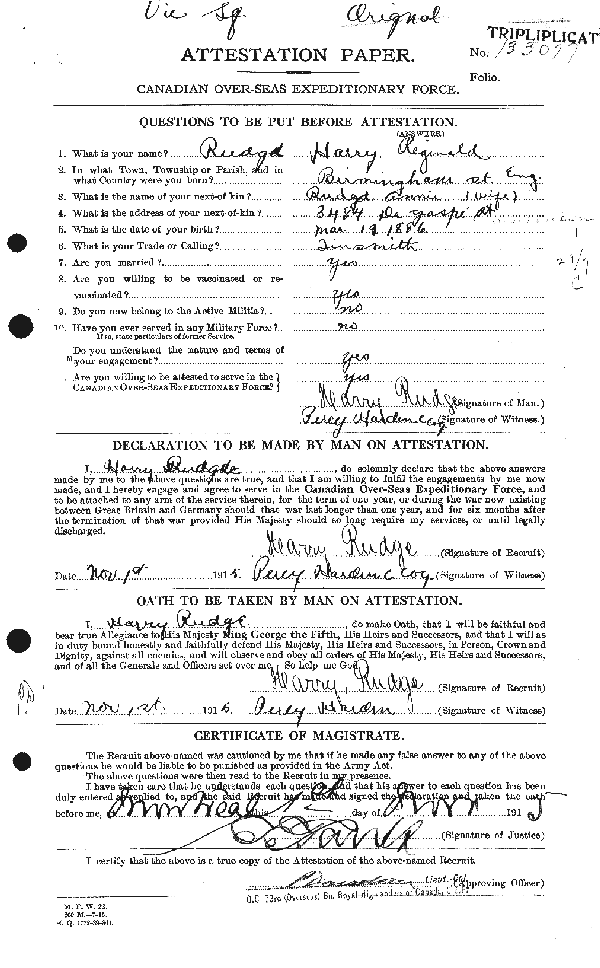 Vic Sq. Orignal
TRIPLIPLICAT
ATTESTATION PAPER.
No. 133097
Folio.
CANADIAN OVER-SEAS EXPEDITIONARY FORCE.
QUESTIONS TO BE PUT BEFORE ATTESTATION.
(ANSWERS)
1. What is your name? Rudge Harry Reginald
2. In what Town, Township or Parish, and in
what Country were you born? Birmingham Eng.
3. What is the name of your next-of-kin? Rudge Annie (wife)
4. What is the address of your next-of-kin? 3484 De Gaspe
5. What is the date of your birth? Mar 1886
6. What is your Trade or Calling? Tinsmith
7. Are you married? Yes
8. Are you willing to be vaccinated or re-
vaccinated? yes
9. Do you now belong to the Active Militia? no
10. Have you ever served in any Military Force? no
If so, state particulars of former Service.
Do you understand the nature and terms of
your engagement? yes
Are you willing to be attested to serve in the
CANADIAN OVER-SEAS EXPEDITIONARY FORCE? yes
Harry Rudge (Signature of Man.)
Percy (Signature of Witness.)
DECLARATION TO BE MADE BY MAN ON ATTESTATION.
I, Harry Rudge, do solemnly declare that the above answers
made by me to the above questions are true, and that I am willing to fulfil the engagements by me now
made, and I hereby engage and agree to serve in the Canadian Over-Seas Expeditionary Force, and
to be attached to any arm of the service therein, for the term of one year, or during the war now existing
between Great Britain and Germany should that war last longer than one year, and for six months after
the termination of that war provided His Majesty should so long require my services, or until legally
discharged.
Harry Rudge (Signature of Recruit)
Date Nov 1st 1915. Percy (Signature of Witness)
OATH TO BE TAKEN BY MAN ON ATTESTATION.
I, Harry Rudge, do make Oath, that I will be faithful and
bear true Allegiance to His Majesty King George the Fifth, His Heirs and Successors, and that I will as
in duty bound honestly and faithfully defend His Majesty, His Heirs and Successors, in Person, Crown and
Dignity, against all enemies, and will observe and obey all orders of His Majesty, His Heirs and Successors,
and of all the Generals and Officers set over me. So help me God.
Harry Rudge (Signature of Recruit)
Date Nov 1st 1915 Percy (Signature of Witness)
CERTIFICATE OF MAGISTRATE.
The Recruit above-named was cautioned by me that if he made any false answer to any of the above
questions he would be liable to be punished as provided in the Army Act.
The above questions were then read to the Recruit in my presence.
I have taken care that he understands each question, and that his answer to each question has been
duly entered as replied to, and the said Recruit has made and signed the declaration and taken the oath
before me, at Montreal this day of Nov 1915
(Signature of Justice)
I certify that the above is a true copy of the Attestation of the above-named Recruit.
Lieut. Col. (Approving Officer)
O.C. 73rd (Overseas) Bn. Royal Highlanders of Canada
M. F. W. 23.